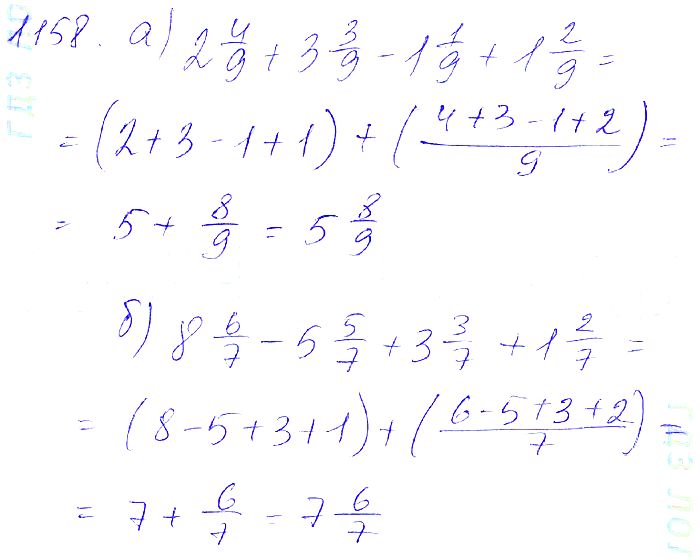 1158. а) 2 4/9 + 3 3/9 - 1 1/9 + 1 2/9 =
= (2+3-1+1) + ((4+3-1+2)/9) =
= 5 + 8/9 = 5 8/9
б) 8 6/7 - 5 5/7 + 3 3/7 + 1 2/7 =
= (8-5+3+1) + ((6-5+3+2)/7) =
= 7 + 6/7 = 7 6/7